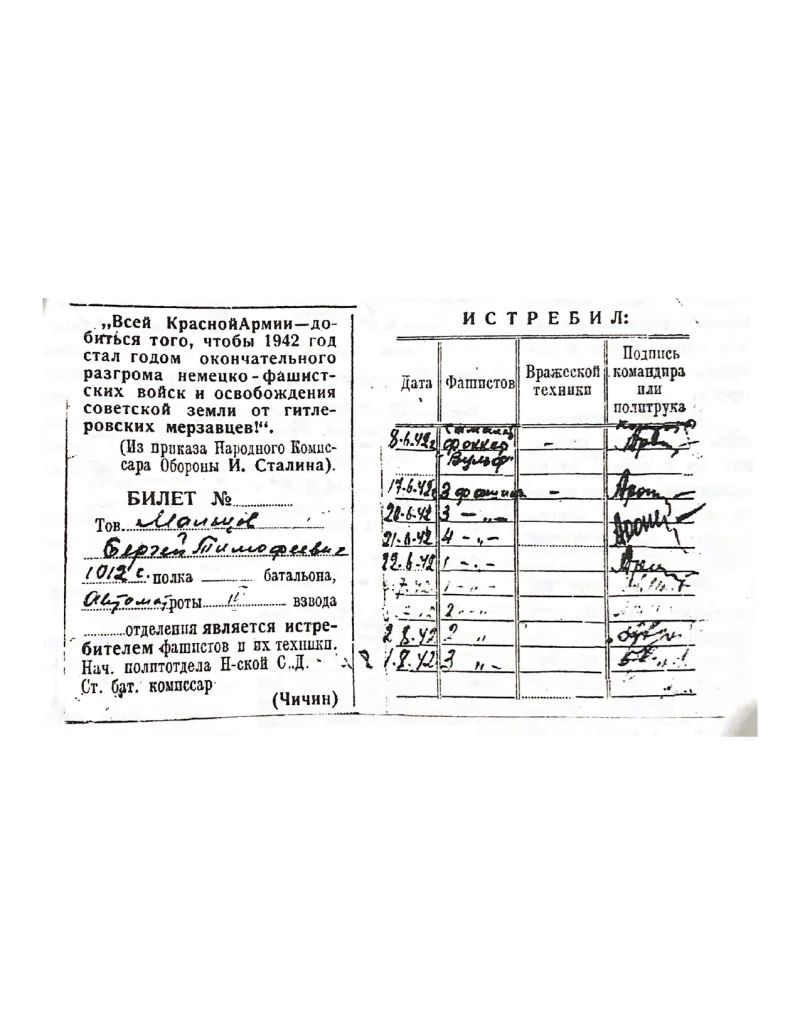 „Всей КраснойАрмии—до-
биться того, чтобы 1942 год
стал годом окончательного
разгрома немецко-фашист-
ских войск и освобождения
советской земли от гитле-
ровских мерзавцев!“.
(Из приказа Народного Комис-
сара Обороны И. Сталина).
БИЛЕТ №
Тов. Мальцов
Сергей Тимофеевич
1012 с. полка батальона,
Автомат роты II взвода
отделения является истре-
бителем фашистов и их техники.
Нач. политотдела Н-ской С.Д.
Ст. бат. комиссар
(Чичин)
ИСТРЕБИЛ:
Дата Фашистов Вражеской техники Подпись командира или политрука
8.6.42г Фоккер "Вульф" -
17.6.42г 3 фашиста -
20.6.42 3 - „ -
21.6.42 4 - „ -
22.6.42 1 - „ -
7.42 1
2
2 8.42 2 „
1.8.42 3 „ -